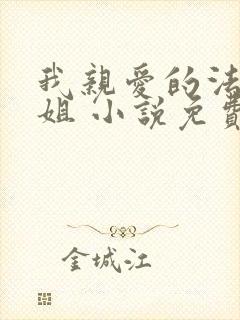 我親愛的法
姐 小說免費
金城江